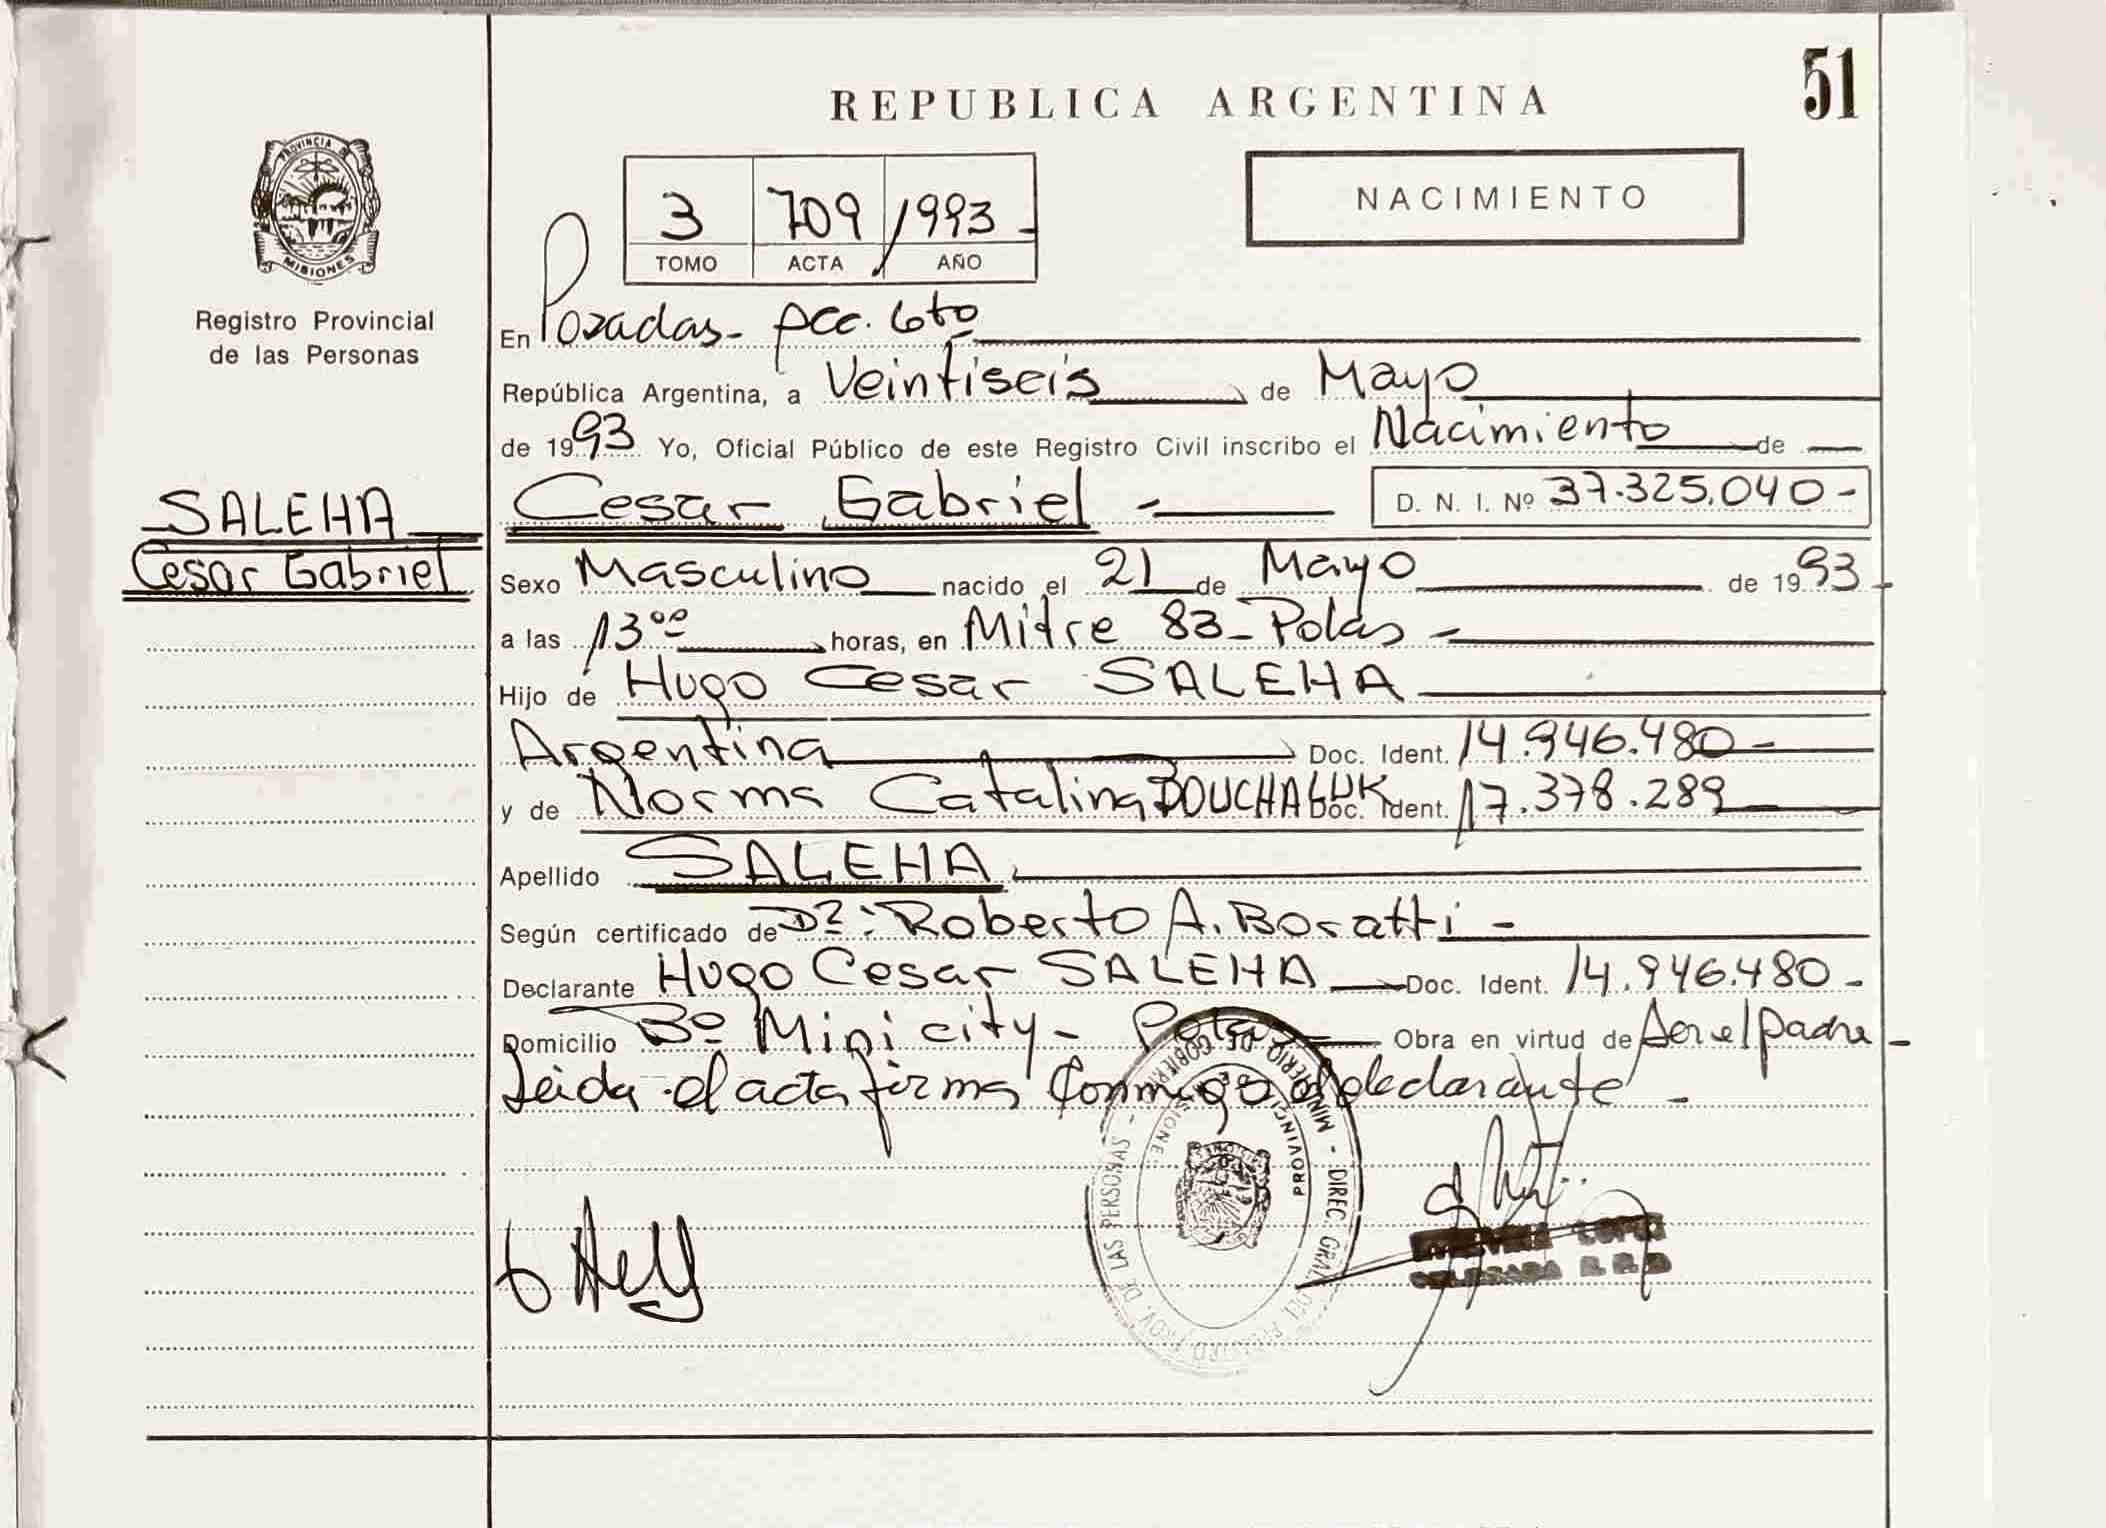 51
REPUBLICA ARGENTINA
NACIMIENTO
PROVINCIA D
MISIONES
Registro Provincial
de las Personas
3 709 1993-
TOMO ACTA AÑO
En Posadas- 6to
República Argentina, a Veintiseis de Mayo
de 1993 Yo, Oficial Público de este Registro Civil inscribo el Nacimiento de
SALEHA
Cesar Gabriel
Cesar Gabriel - D. N. I. Nº 37.325.040-
Sexo Masculino nacido el 21 de Mayo de 1993-
a las 13ºº horas, en Mitre 83-Pdas-
Hijo de Hugo Cesar SALEHA
Argentina Doc. Ident. 14.946.480-
y de Norma Catalina BOUCHALUK Doc. Ident. 17.378.289
Apellido SALEHA
Según certificado de Roberto A. Boratti-
Declarante Hugo Cesar SALEHA Doc. Ident. 14.946.480-
Domicilio Bº Mini city- Pdas Obra en virtud de Ser el padre-
Leida el acta firma conmigo el declarante-
MINISTERIO DE GOBIERNO - DIREC. GRAL. DEL REGISTRO PROV. DE LAS PERSONAS -
PROVINCIA DE MISIONES
LOPEZ
DELEGADA